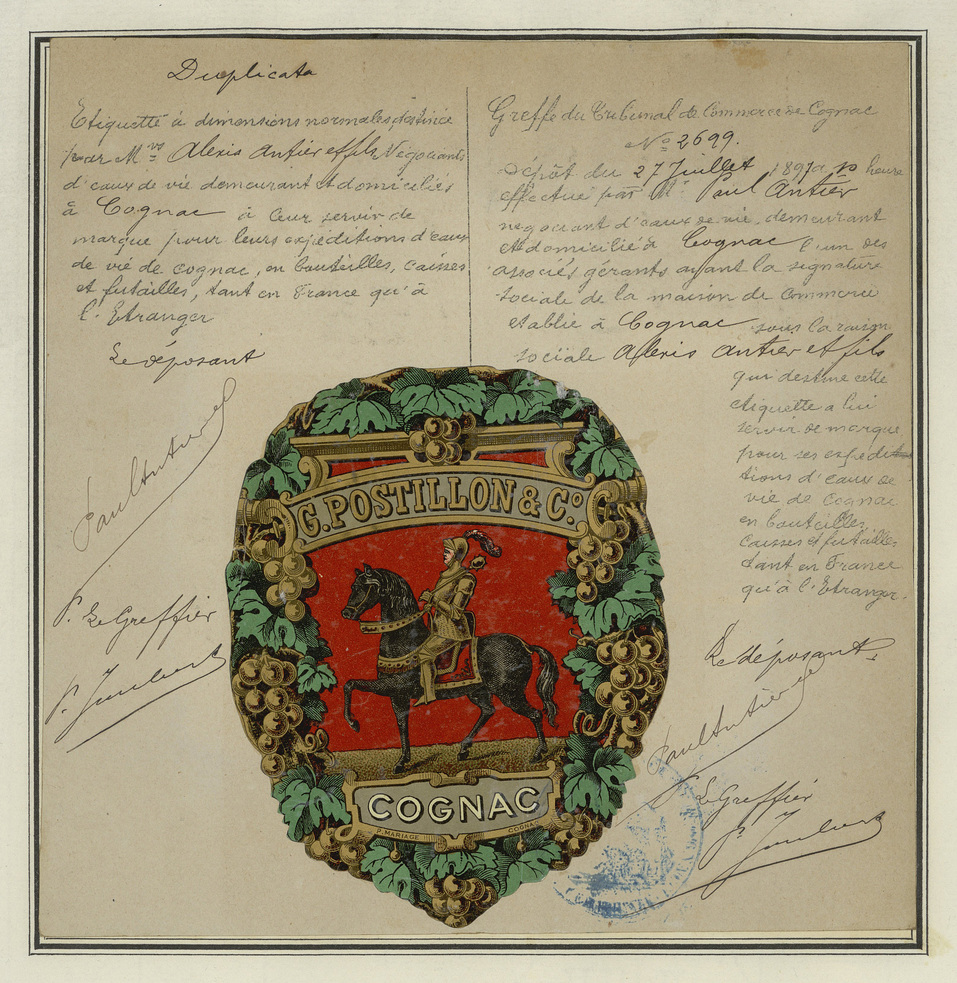 Duplicata
Etiquette à dimensions normales destinée
par Mrs Alexis Antier et fils Négociants
d'eaux de vie demeurant et domiciliés
à Cognac à leur servir de
marque pour leurs expéditions d'eaux
de vie de cognac, en bouteilles, caisses
et futailles, tant en France qu'à
l'Etranger
Le déposant
Paul Antier
P. Le Greffier
Greffe du Tribunal de Commerce de Cognac
No 2699.
Dépôt du 27 Juillet 1897 a 10 heures
effectué par M. Paul Antier
négociant d'eaux de vie, demeurant
et domicilié à Cognac l'un des
associés gérants ayant la signature
sociale de la maison de commerce
etablie à Cognac sous la raison
sociale Alexis Antier et fils
qui destine cette
etiquette a lui
servir de marque
pour ses expédi-
tions d'eaux de
vie de Cognac
en bouteilles,
caisses et futailles
tant en France
qu'à l'Etranger.
Le déposant
Paul Antier
P. Le Greffier
G. POSTILLON & Co.
COGNAC
P. MARIAGE COGNAC